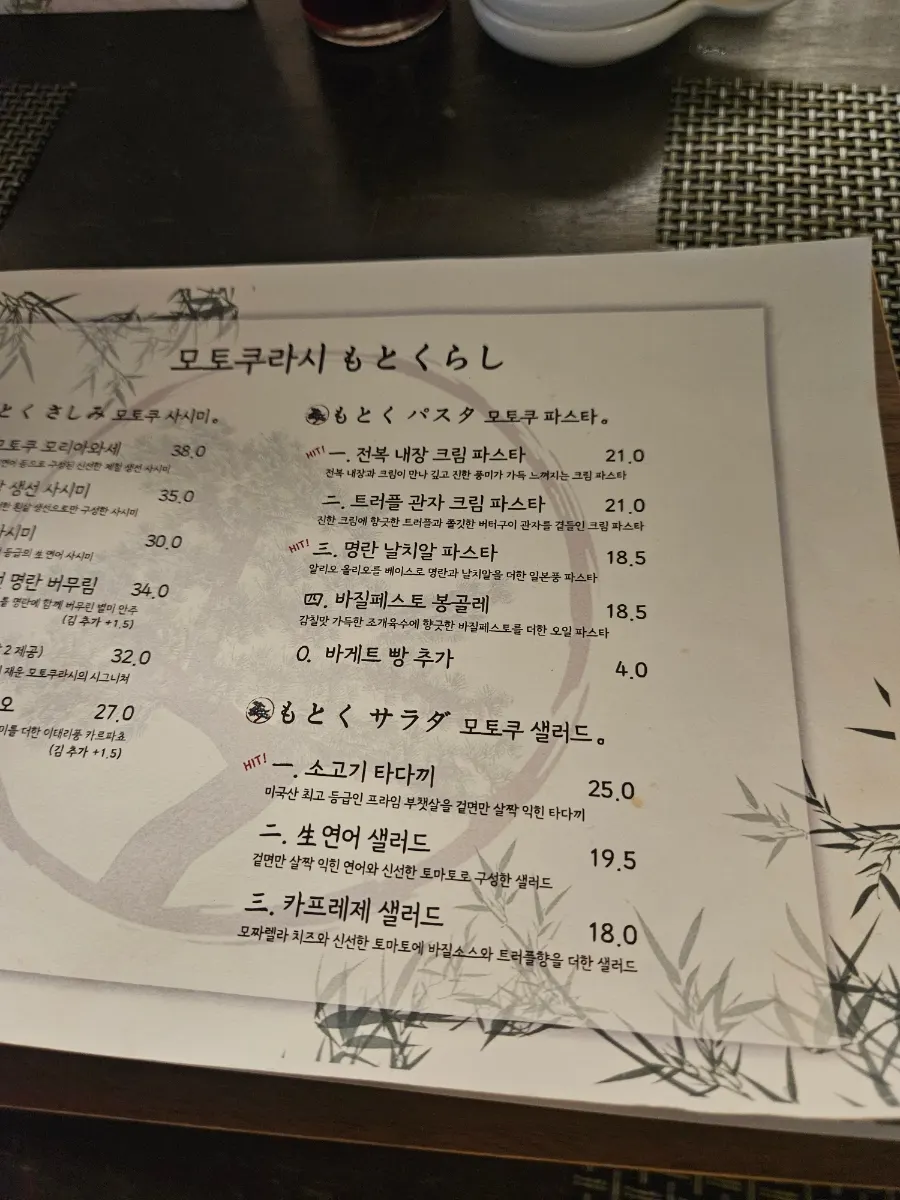 모토쿠라시 もとくらし
とく さしみ 모토쿠 사시미。
모토쿠 모리아와세 38.0
연어 등으로 구성된 신선한 제철 생선 사시미
생선 사시미 35.0
흰살 생선으로만 구성한 사시미
사시미 30.0
등급의 生 연어 사시미
명란 버무림 34.0
명란에 함께 버무린 별미 안주
(김 추가 +1.5)
2 제공) 32.0
채운 모토쿠라시의 시그니처
오 27.0
미를 더한 이태리풍 카르파쵸
(김 추가 +1.5)
もとく パスタ 모토쿠 파스타。
HIT! 一. 전복 내장 크림 파스타 21.0
전복 내장과 크림이 만나 깊고 진한 풍미가 가득 느껴지는 크림 파스타
二. 트러플 관자 크림 파스타 21.0
진한 크림에 향긋한 트러플과 쫄깃한 버터구이 관자를 곁들인 크림 파스타
HIT! 三. 명란 날치알 파스타 18.5
알리오 올리오를 베이스로 명란과 날치알을 더한 일본풍 파스타
四. 바질페스토 봉골레 18.5
감칠맛 가득한 조개육수에 향긋한 바질페스토를 더한 오일 파스타
O. 바게트 빵 추가 4.0
もとく サラダ 모토쿠 샐러드。
HIT! 一. 소고기 타다끼 25.0
미국산 최고 등급인 프라임 부챗살을 겉면만 살짝 익힌 타다끼
二. 生 연어 샐러드 19.5
겉면만 살짝 익힌 연어와 신선한 토마토로 구성한 샐러드
三. 카프레제 샐러드 18.0
모짜렐라 치즈와 신선한 토마토에 바질소스와 트러플향을 더한 샐러드